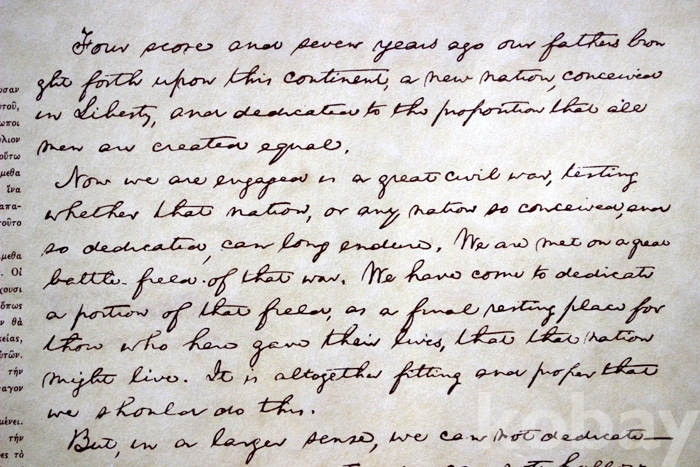 Four score and seven years ago our fathers brou
ght forth upon this continent, a new nation, conceived
in Liberty, and dedicated to the proposition that all
men are created equal.
Now we are engaged in a great civil war, testing
whether that nation, or any nation so conceived, and
so dedicated, can long endure. We are met on a great
battle-field of that war. We have come to dedicate
a portion of that field, as a final resting place for
those who here gave their lives, that that nation
might live. It is altogether fitting and proper that
we should do this.
But, in a larger sense, we can not dedicate—
υσαν
υτοῦ,
ωποι
ύλιον
οὕτω
μεθα
ἵνα
απα-
τοῦτο
μεθα
. Οἱ
χουσι
ν θὰ
κείας,
ὐτῶν.
τὴν
παγον
μένει.
τὴν
ες τὸ
kobay